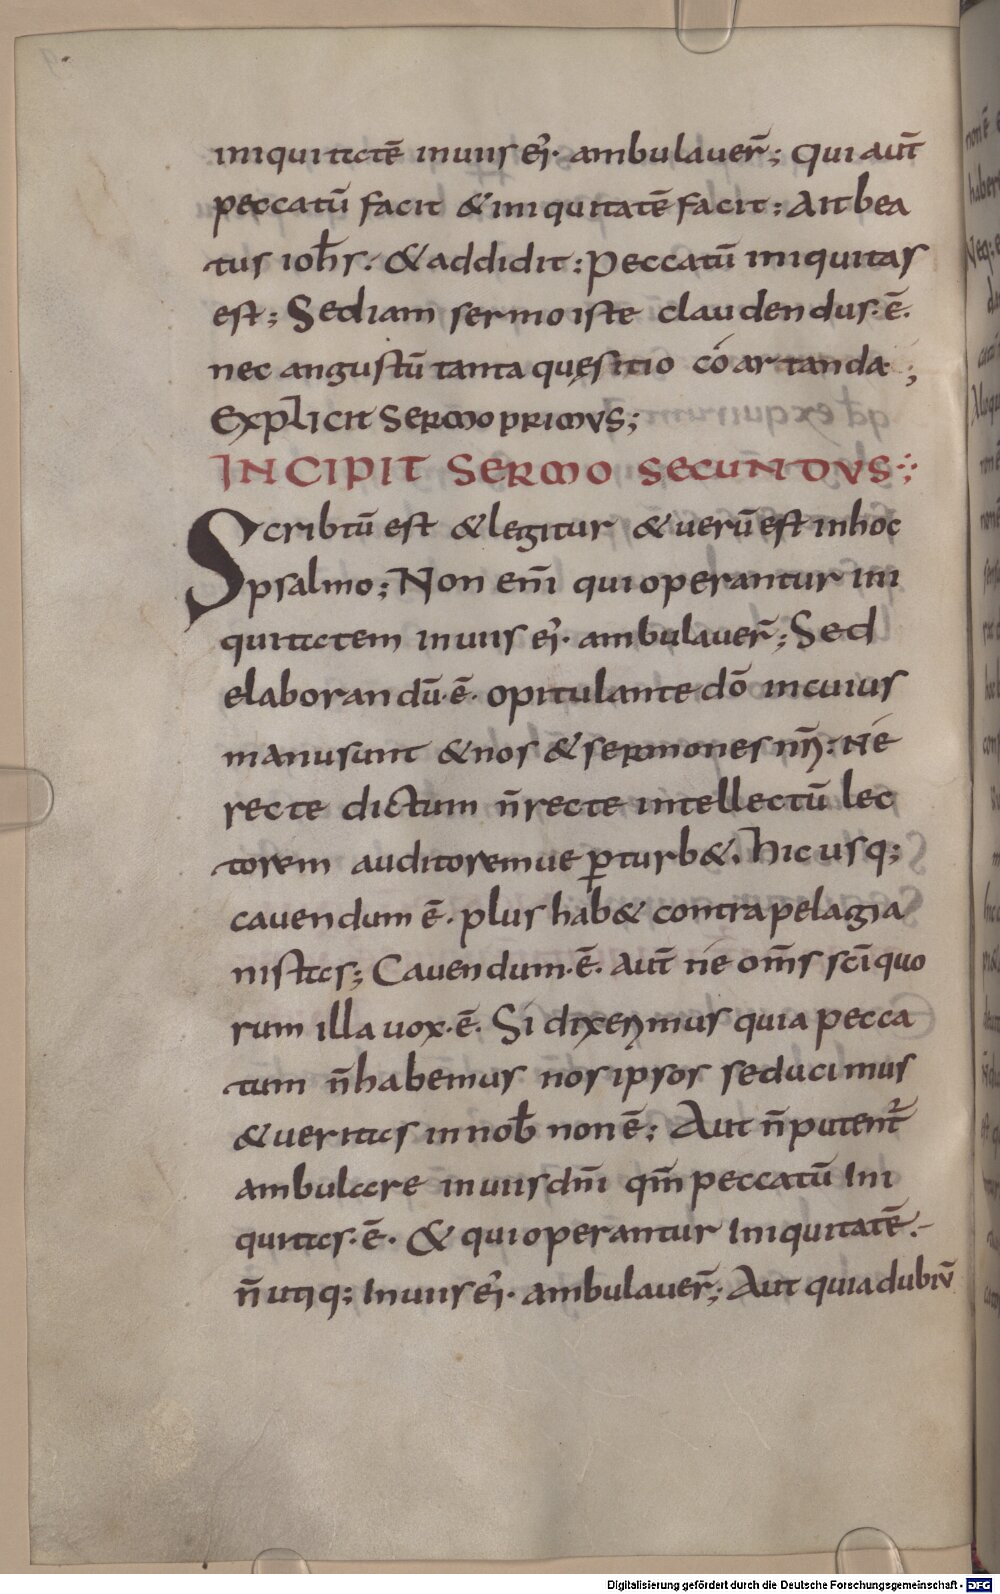 iniquitatē inuiis eī· ambulauer̄; Qui aut̄
peccatū facit & iniquitatē facit; Ait bea
tus ioh̄s·. & addidit: Peccatū iniquitas
est; Sed iam sermo iste claudendus·ē·
nec angustū tanta quęsitio có artanda;
Explicit Sermo primvs;
INCIPIT SERMO SECUNDVS
Scribtū est & legitur & verū est inhoc
psalmo; Non eni̅ qui operantur ini
quitatem inuiis eī· ambulauer̄; Sed
elaborandū·ē· opitulante dō incuius
manu sunt & nos & sermones nr̄i: Né
recte dictum n̄ recte intellectū lec
torem auditoremue ꝑturb&. Hic usq;
cauendum ē· plus hab& contra pelagia
nistas; Cauendum·ē· aut̄ né om̄s sc̄i quo
rum illa uox·ē· Si dixerimus quia pecca
tum n̄ habemus nos ipsos seducimus
& ueritas in nob̄ non ē; Aut n̄ putent̄
ambulare inuiis dn̄i qm̄ peccatū Ini
quitas·ē· & qui operantur Iniquitatē·
n̄ utiq; Inuiis eī· ambulauer̄; Aut quia dubiū
non ē
Digitalisierung gefördert durch die Deutsche Forschungsgemeinschaft - DFG